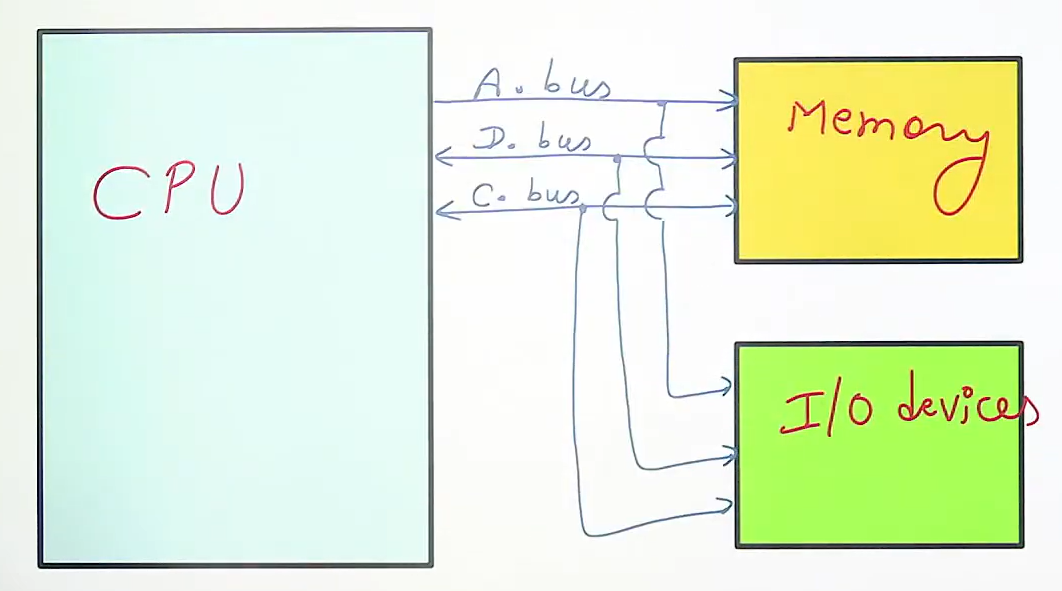 A. bus
D. bus
C. bus
CPU
Memory
I/O devices